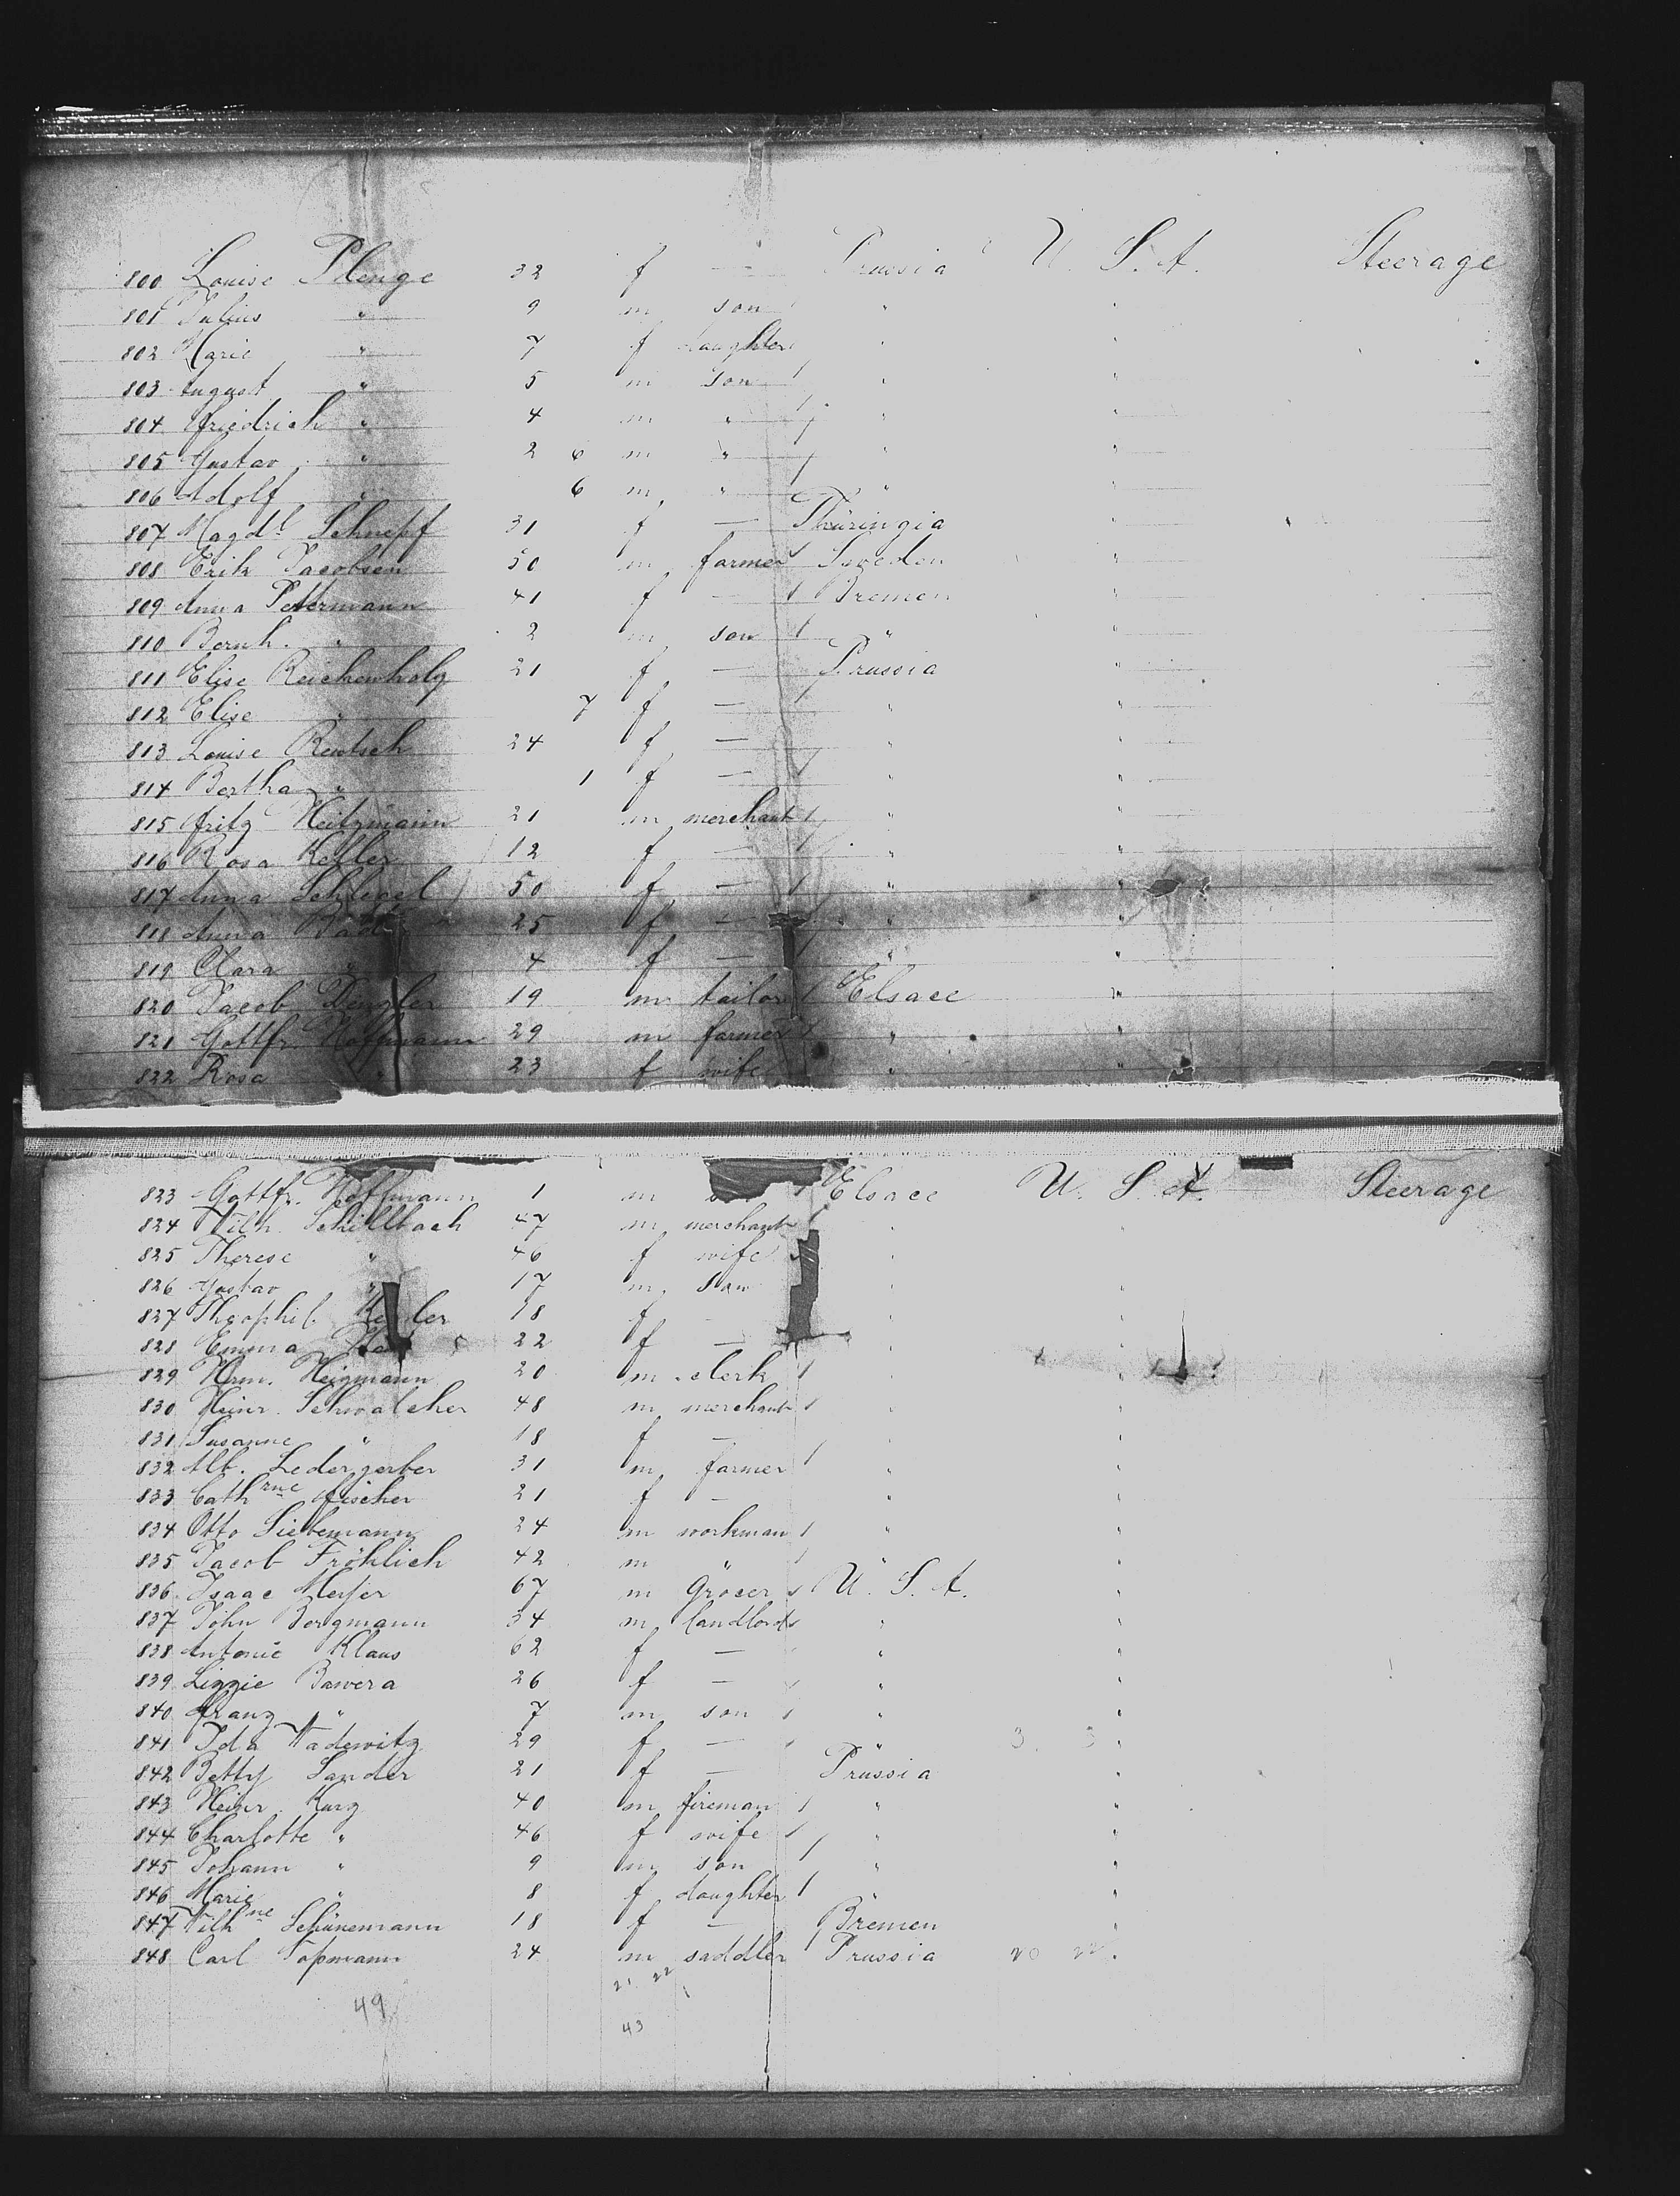 800 Louise Plenge 32 f — Prussia U. S. A. Steerage
801 Julius " 9 m son " "
802 Marie " 7 f daughter " "
803 August " 5 m son " "
804 Friedrich " 4 m " " "
805 Gustav " 2 6 m " " "
806 Adolf " 6 m " " "
807 Magdl Schnepf 31 f — Thüringia "
808 Erik Jacobsen 50 m farmer Sweden "
809 Anna Petermann 41 f — Bremen "
810 Bernh. " 2 m son " "
811 Elise Reichenholz 21 f — Prussia "
812 Elise " 7 f — " "
813 Louise Rentsch 24 f — " "
814 Bertha " 1 f — " "
815 Fritz Heitzmann 21 m merchant " "
816 Rosa Keller 12 f — " "
817 Anna Schlegel 50 f — " "
818 Anna 25 f — " "
819 Clara " 4 f — " "
820 Jacob Dengler 19 m tailor Elsace "
821 Gottfr. Hoffmann 29 m farmer " "
822 Rosa " 23 f wife " "
823 Gottfr. Hoffmann 1 m Elsace U. S. A. Steerage
824 Wilh. Schillbach 47 m merchant " "
825 Therese " 46 f wife " "
826 Gustav " 17 m son "
827 Theophil. 18 f "
828 Emma 22 f — " "
829 Hrm. Heigmann 20 m clerk " "
830 Heinr. Schwalcher 48 m merchant " "
831 Susanne " 18 f — " "
832 Alb. Ledergerber 31 m farmer " "
833 Cathrne Fischer 21 f — " "
834 Otto Siebemann 24 m workman " "
835 Jacob Fröhlich 42 m " "
836 Isaac Meyer 67 m Grocer U. S. A. "
837 John Bergmann 34 m landlord " "
838 Antonie Klaus 62 f — " "
839 Lizzie Bawera 26 f — " "
840 Franz " 7 m son " "
841 Ida Wadewitz 29 f — " 3. 3 "
842 Betty Sander 21 f — Prussia "
843 Heinr. Kurz 40 m fireman " "
844 Charlotte " 46 f wife " "
845 Johann " 9 m son " "
846 Marie " 8 f daughter " "
847 Wilhne Schünemann 18 f — Bremen "
848 Carl Topmann 24 m saddler Prussia 20 22 "
21 22
49
43